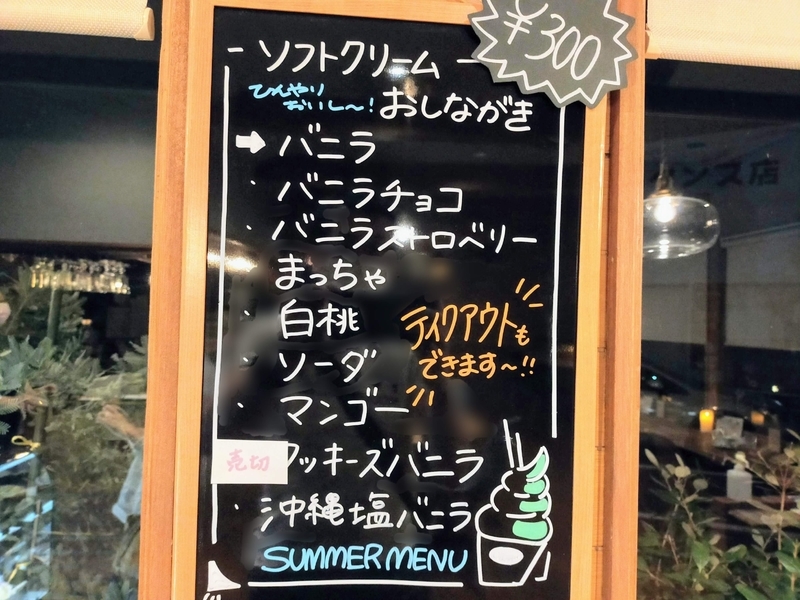 ¥300
ソフトクリーム
ひんやり
おいし〜!
おしながき
バニラ
バニラチョコ
バニラストロベリー
まっちゃ
白桃
ソーダ
マンゴー
テイクアウトも
できます〜!!
売切
クッキーズバニラ
沖縄塩バニラ
SUMMER MENU